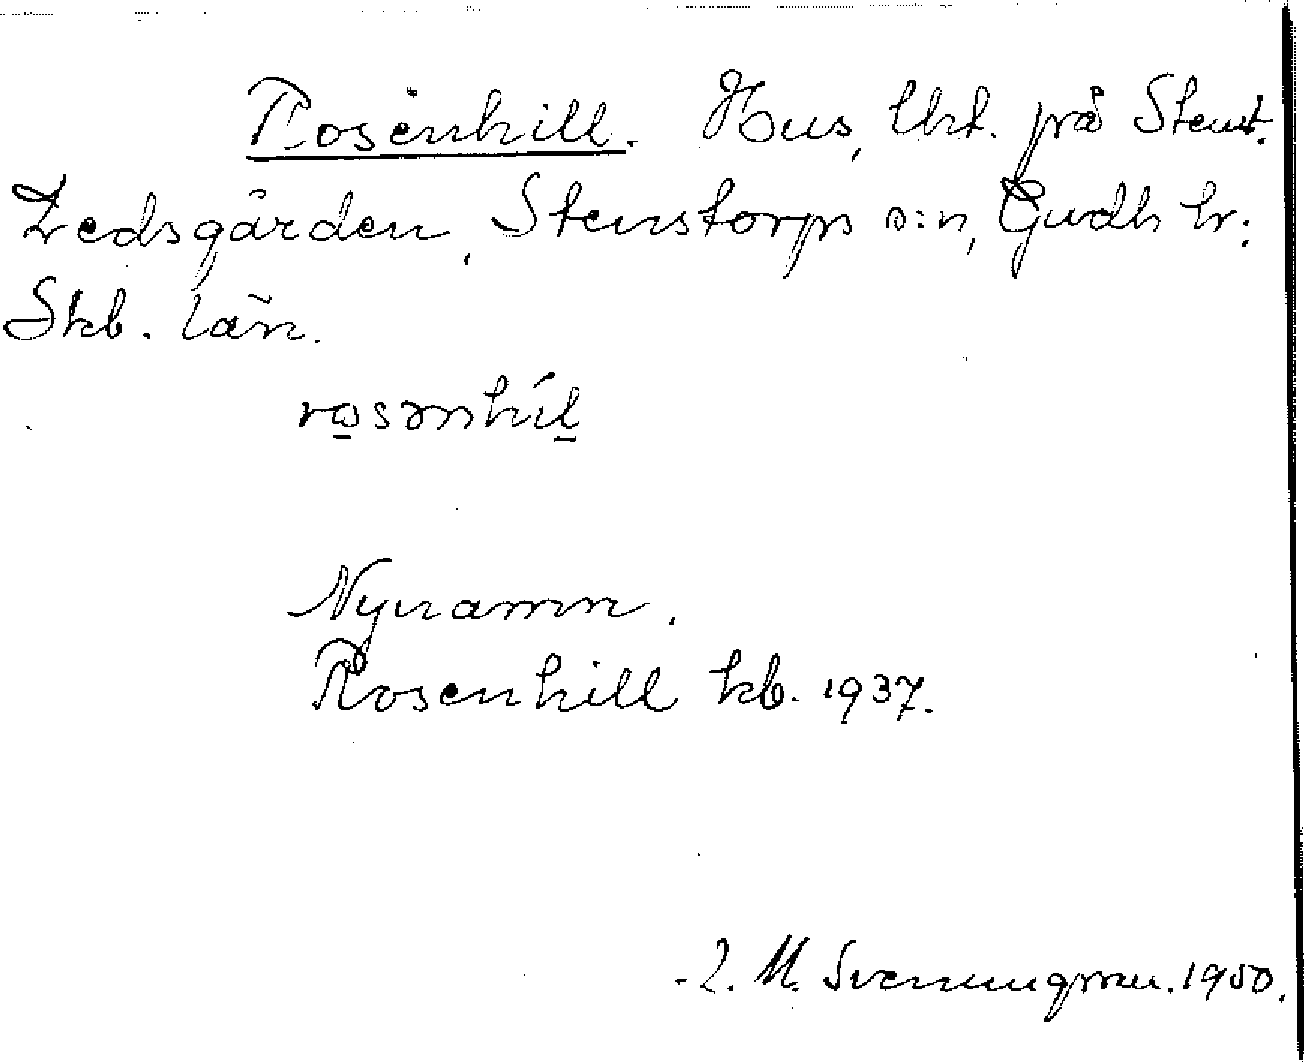 Rosenhill. Hus, lht. på Stenst.
Ledsgården, Stenstorps s:n, Gudh hr:
Skb. län.
rosənhíl
Nynamn.
Rosenhill kb. 1937.
M. Svenungsson. 1950.